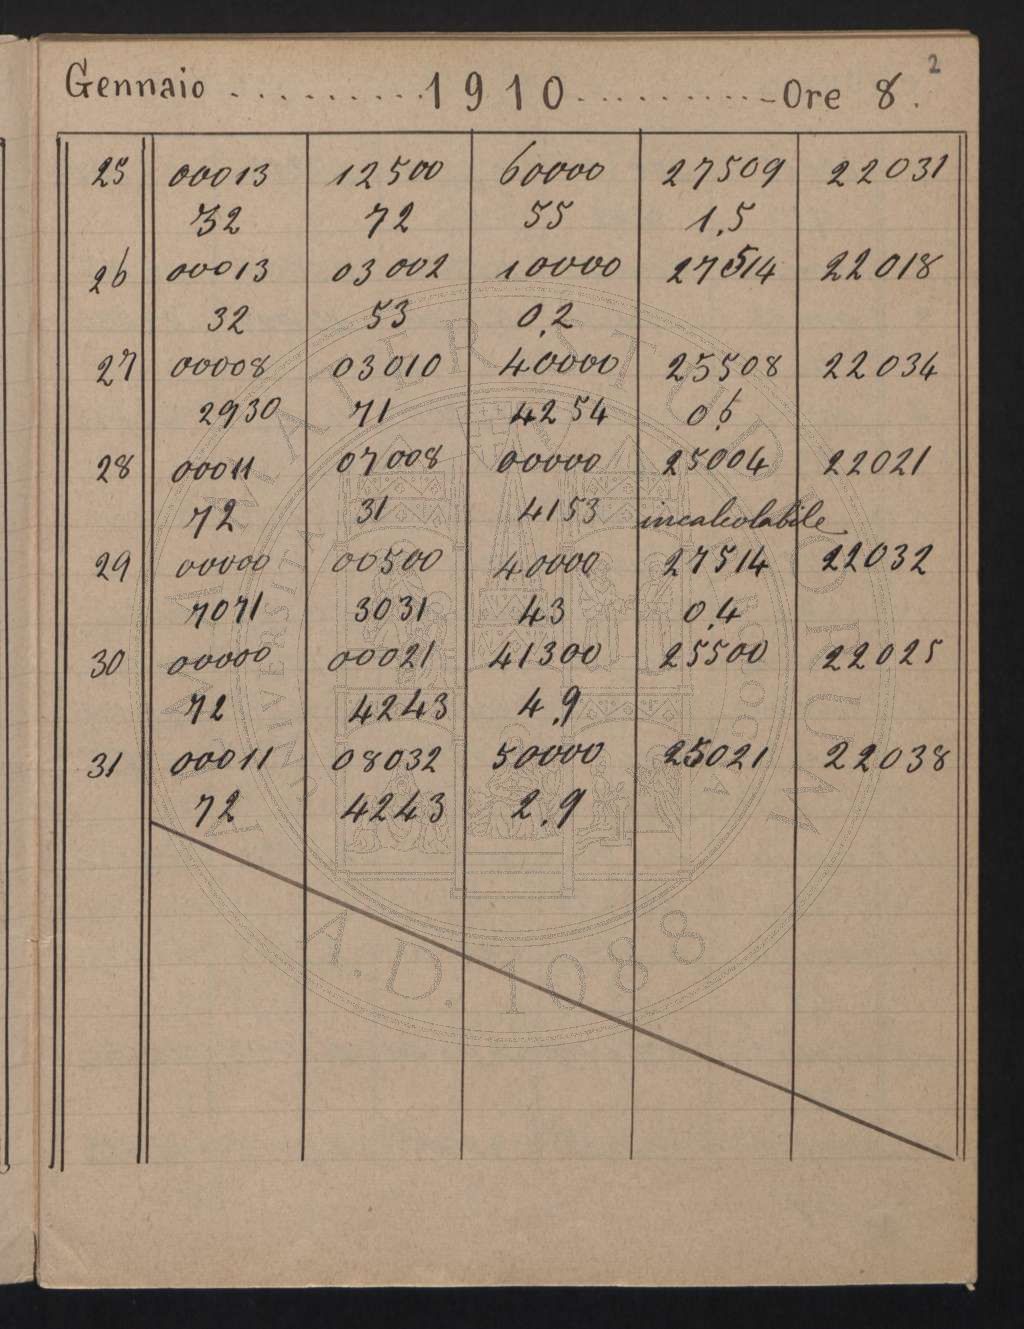 2
Gennaio .......... 1910 ........... Ore 8.
25 00013 12500 60000 27509 22031
32 72 55 1.5
26 00013 03002 10000 27514 22018
32 53 0.2
27 00008 03010 40000 25508 22034
2930 71 4254 0.6
28 00011 07008 00000 25004 22021
72 31 4153 incalcolabile
29 00000 00500 40000 27514 22032
7071 3031 43 0.4
30 00000 00021 41300 25500 22025
72 4243 4.9
31 00011 08032 50000 25021 22038
72 4243 2.9
ALMA MATER STUDIORUM
A.D. 1088